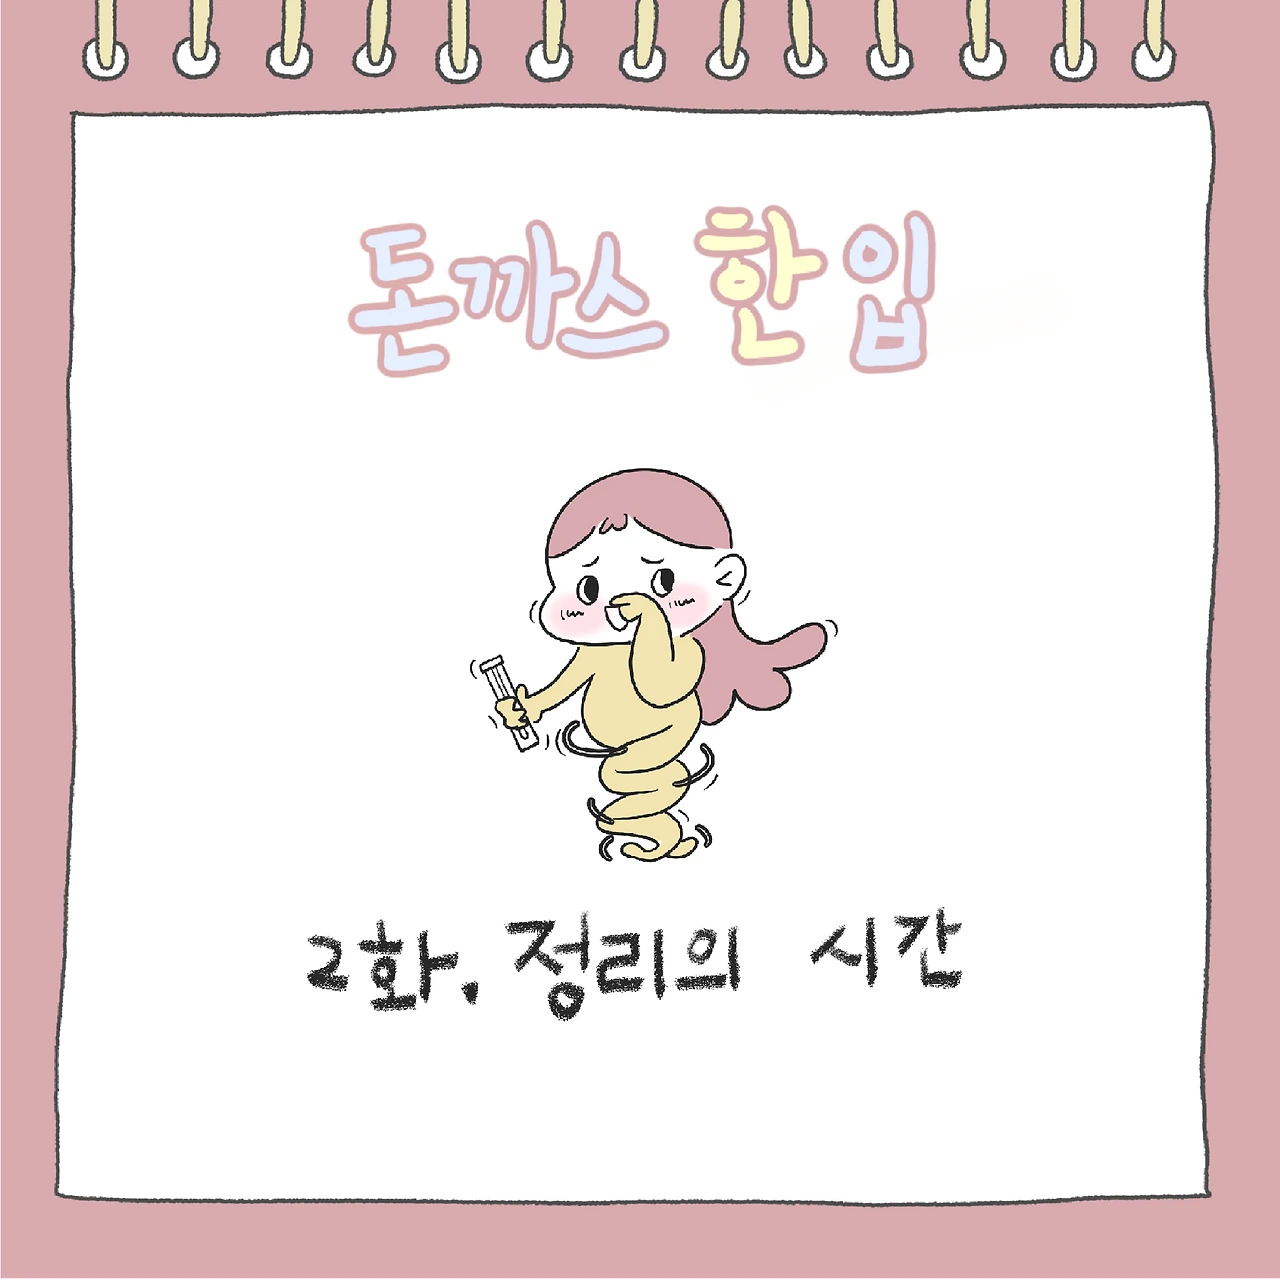 돈까스 한입
2화. 정리의 시간